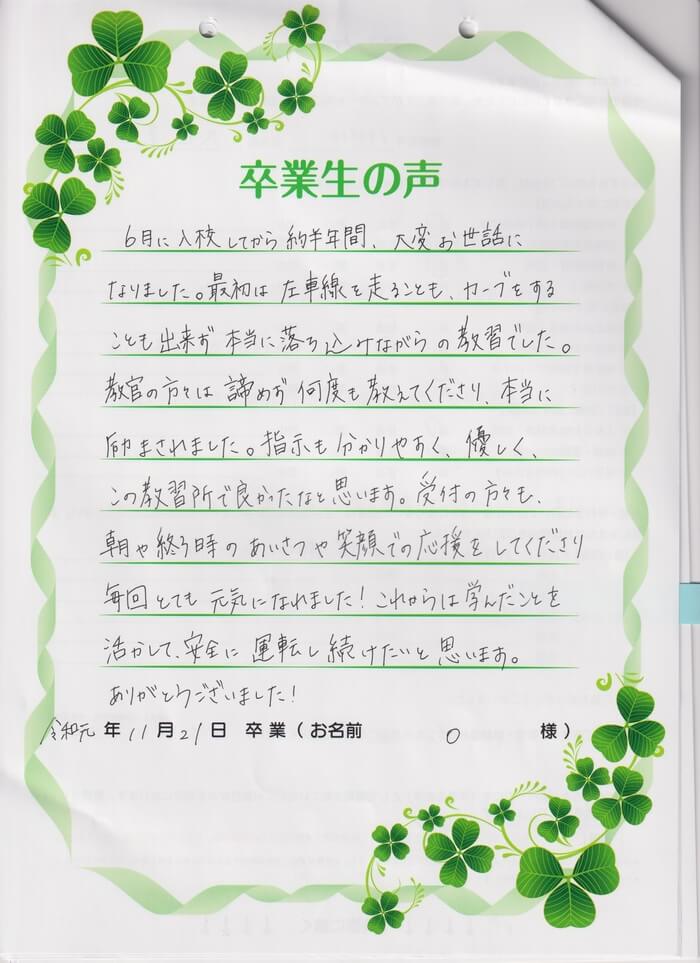 卒業生の声
6月に入校してから約半年間、大変お世話に
なりました。最初は左車線を走ることも、カーブをする
ことも出来ず本当に落ち込みながらの教習でした。
教官の方々は諦めず何度も教えてくださり、本当に
励まされました。指示も分かりやすく、優しく、
この教習所で良かったなと思います。受付の方々も、
朝や終る時のあいさつや笑顔での応援をしてくださり
毎回とても元気になれました！これからは学んだことを
活かして、安全に運転し続けたいと思います。
ありがとうございました！
令和元年11月21日 卒業（お名前 O 様）